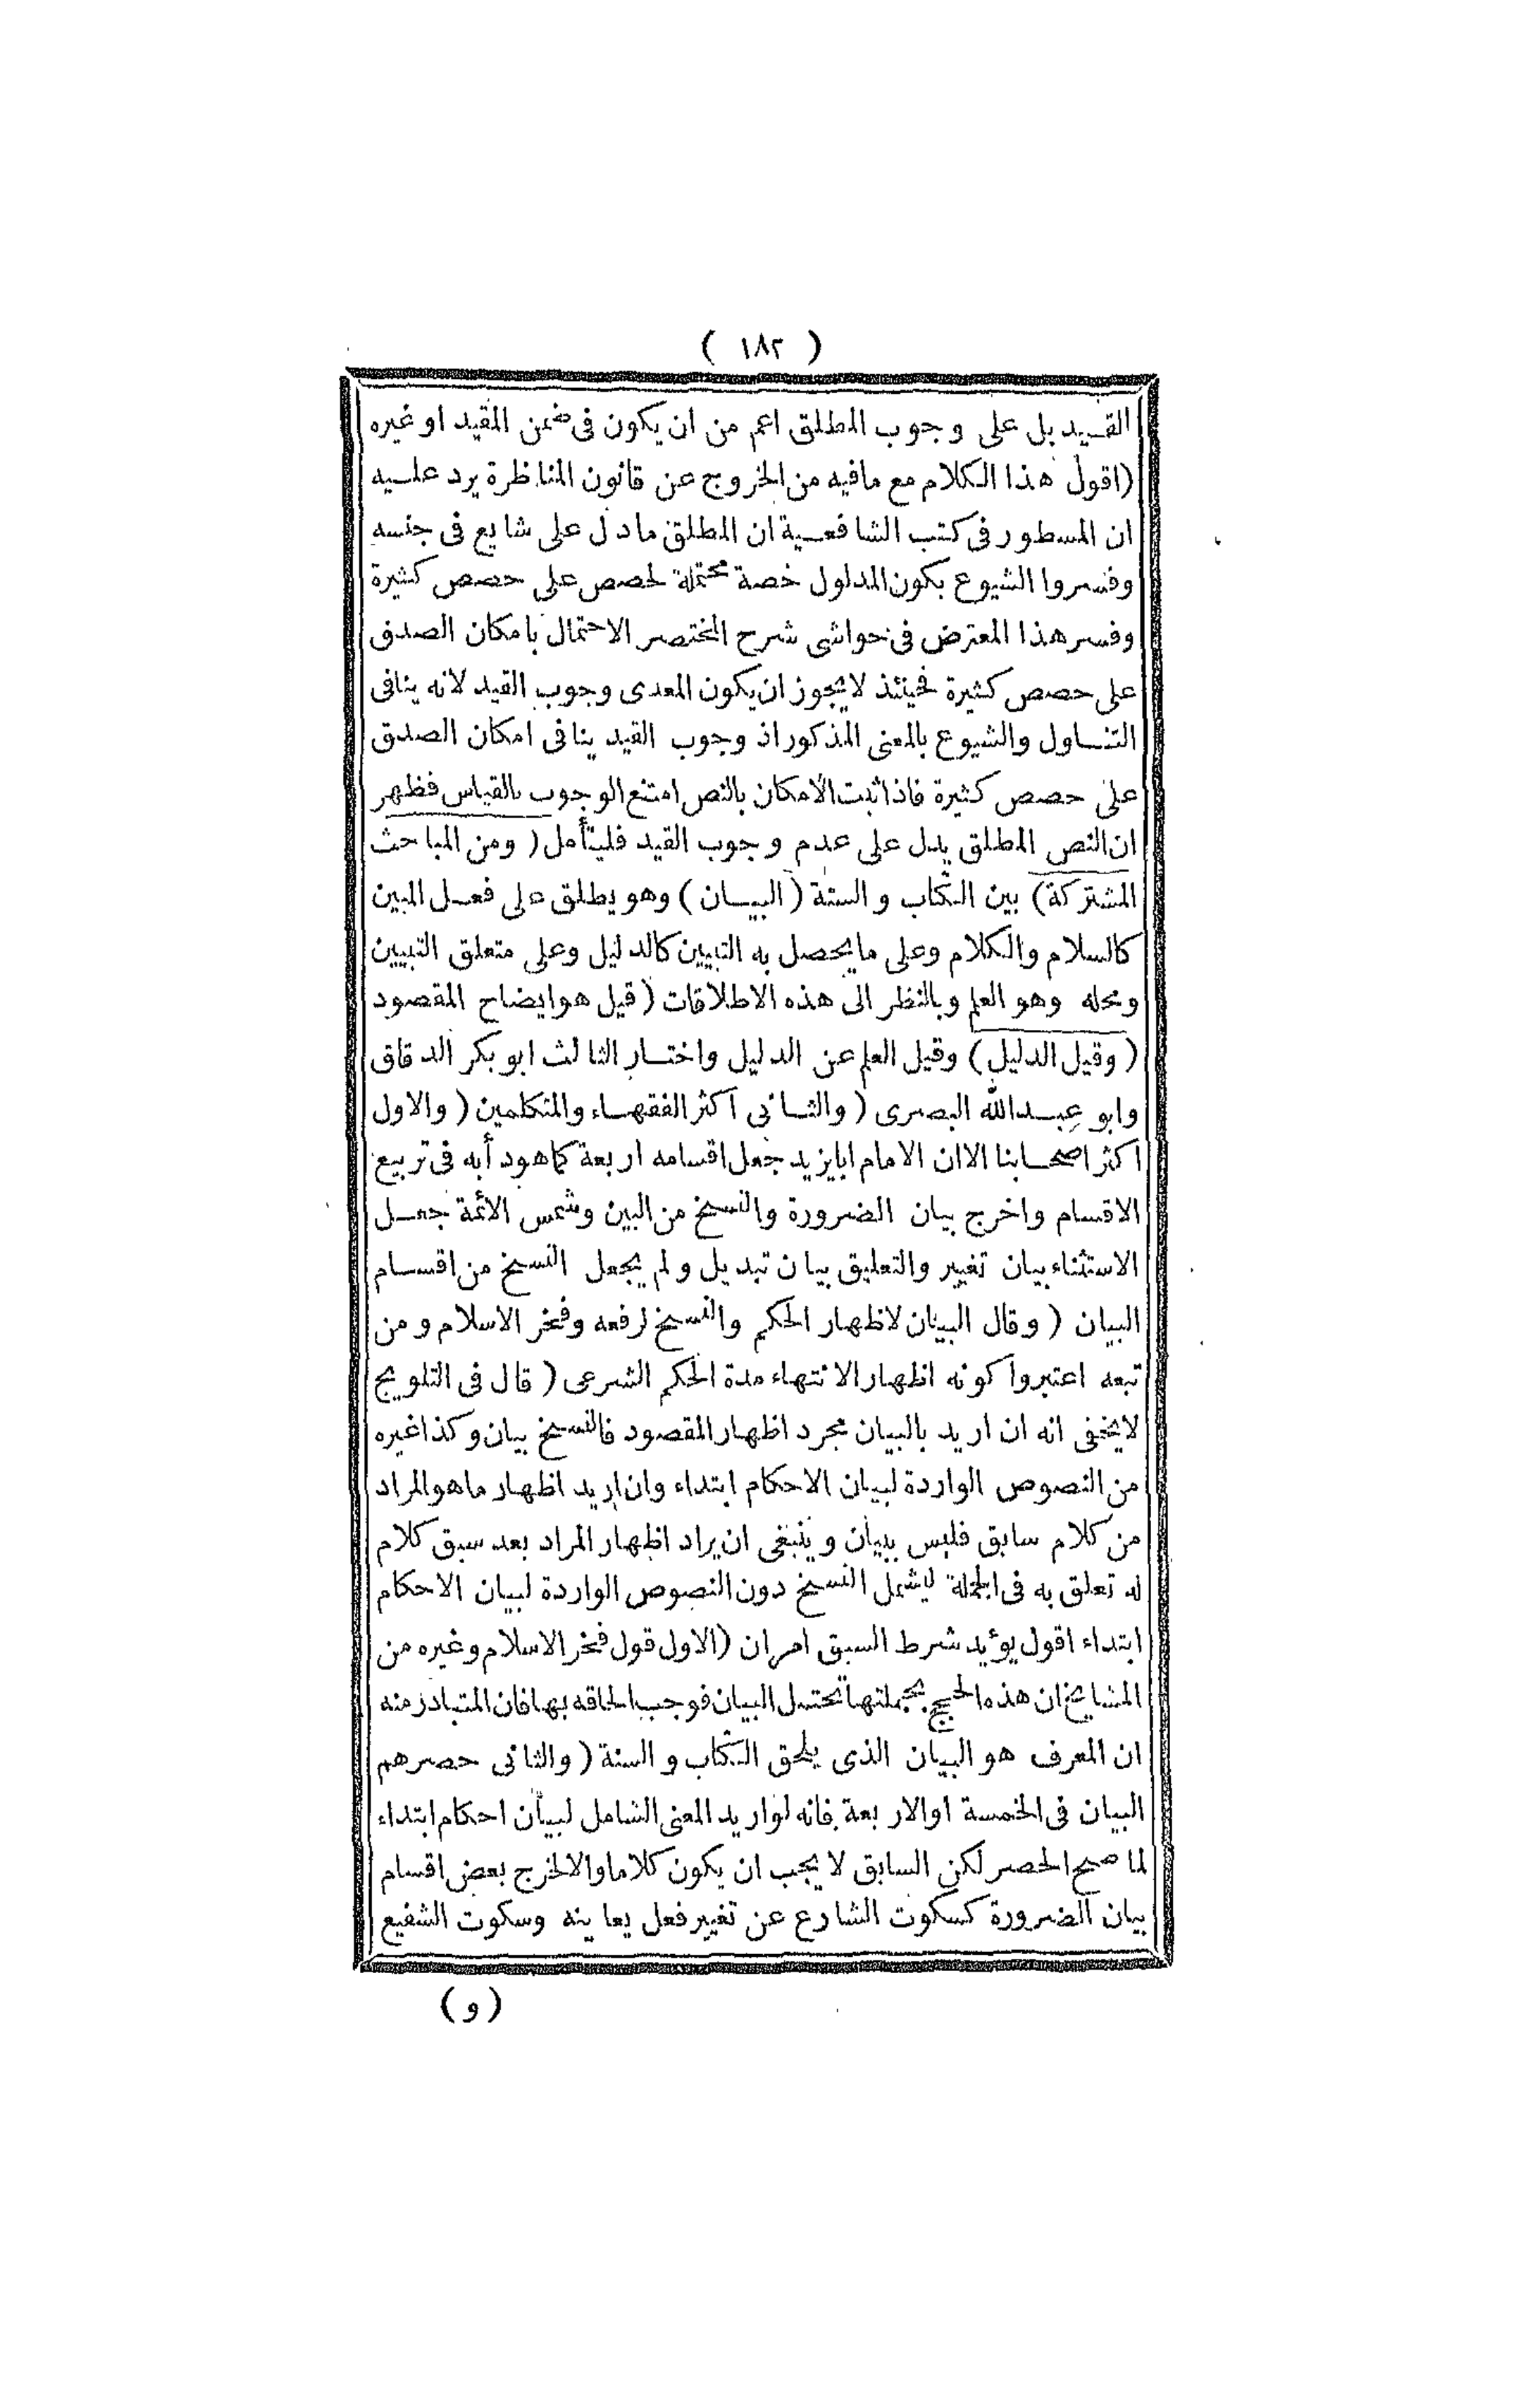 ( ١٨٢ )
القيد بل على وجوب المطلق اعم من ان يكون فى ضمن المقيد او غيره
(اقول هذا الكلام مع مافيه من الخروج عن قانون المناظرة يرد عليه
ان المسطور فى كتب الشافعية ان المطلق مادل على شايع فى جنسه
وفسروا الشيوع بكون المدلول خصة محتملة لحصص على حصص كثيرة
وفسر هذا المعترض فى حواشى شرح المختصر الاحتمال بامكان الصدق
على حصص كثيرة فحينئذ لايجوز ان يكون المعدى وجوب القيد لانه ينافى
التناول والشيوع بالمعنى المذكور اذ وجوب القيد ينافى امكان الصدق
على حصص كثيرة فاذا ثبت الامكان بالنص امتنع الوجوب بالقياس فظهر
ان النص المطلق يدل على عدم وجوب القيد فليتأمل ( ومن المباحث
المشتركة) بين الكتاب والسنة (البيان) وهو يطلق على فعل المبين
كالسلام والكلام وعلى مايحصل به التبيين كالدليل وعلى متعلق التبيين
ومحله وهو العلم وبالنظر الى هذه الاطلاقات (قيل هو ايضاح المقصود
(وقيل الدليل) وقيل العلم عن الدليل واختار الثالث ابو بكر الدقاق
وابو عبدالله البصرى (والثانى اكثر الفقهاء والمتكلمين (والاول
اكثر اصحابنا الاان الامام ابا يزيد جعل اقسامه اربعة كماهو دأبه فى تربيع
الاقسام واخرج بيان الضرورة والنسخ من البين وشمس الائمة جعل
الاستثناء بيان تغيير والتعليق بيان تبديل ولم يجعل النسخ من اقسام
البيان (وقال البيان لاظهار الحكم والنسخ لرفعه وفخر الاسلام ومن
تبعه اعتبروا كونه اظهار الانتهاء مدة الحكم الشرعى (قال فى التلويح
لايخفى انه ان اريد بالبيان مجرد اظهار المقصود فالنسخ بيان وكذا غيره
من النصوص الواردة لبيان الاحكام ابتداء وان اريد اظهار ماهو المراد
من كلام سابق فليس ببيان وينبغى ان يراد اظهار المراد بعد سبق كلام
له تعلق به فى الجملة ليشمل النسخ دون النصوص الواردة لبيان الاحكام
ابتداء اقول يؤيد شرط السبق امران (الاول قول فخر الاسلام وغيره من
المشايخ ان هذه الحجج بجملتها تحتمل البيان فوجب الحاقه بها فان المتبادر منه
ان المعرف هو البيان الذى يلحق الكتاب والسنة (والثانى حصرهم
البيان فى الخمسة او الاربعة فانه لو اريد المعنى الشامل لبيان احكام ابتداء
لما صح الحصر لكن السابق لا يجب ان يكون كلاما والالخرج بعض اقسام
بيان الضرورة كسكوت الشارع عن تغيير فعل يعاينه وسكوت الشفيع
(و)